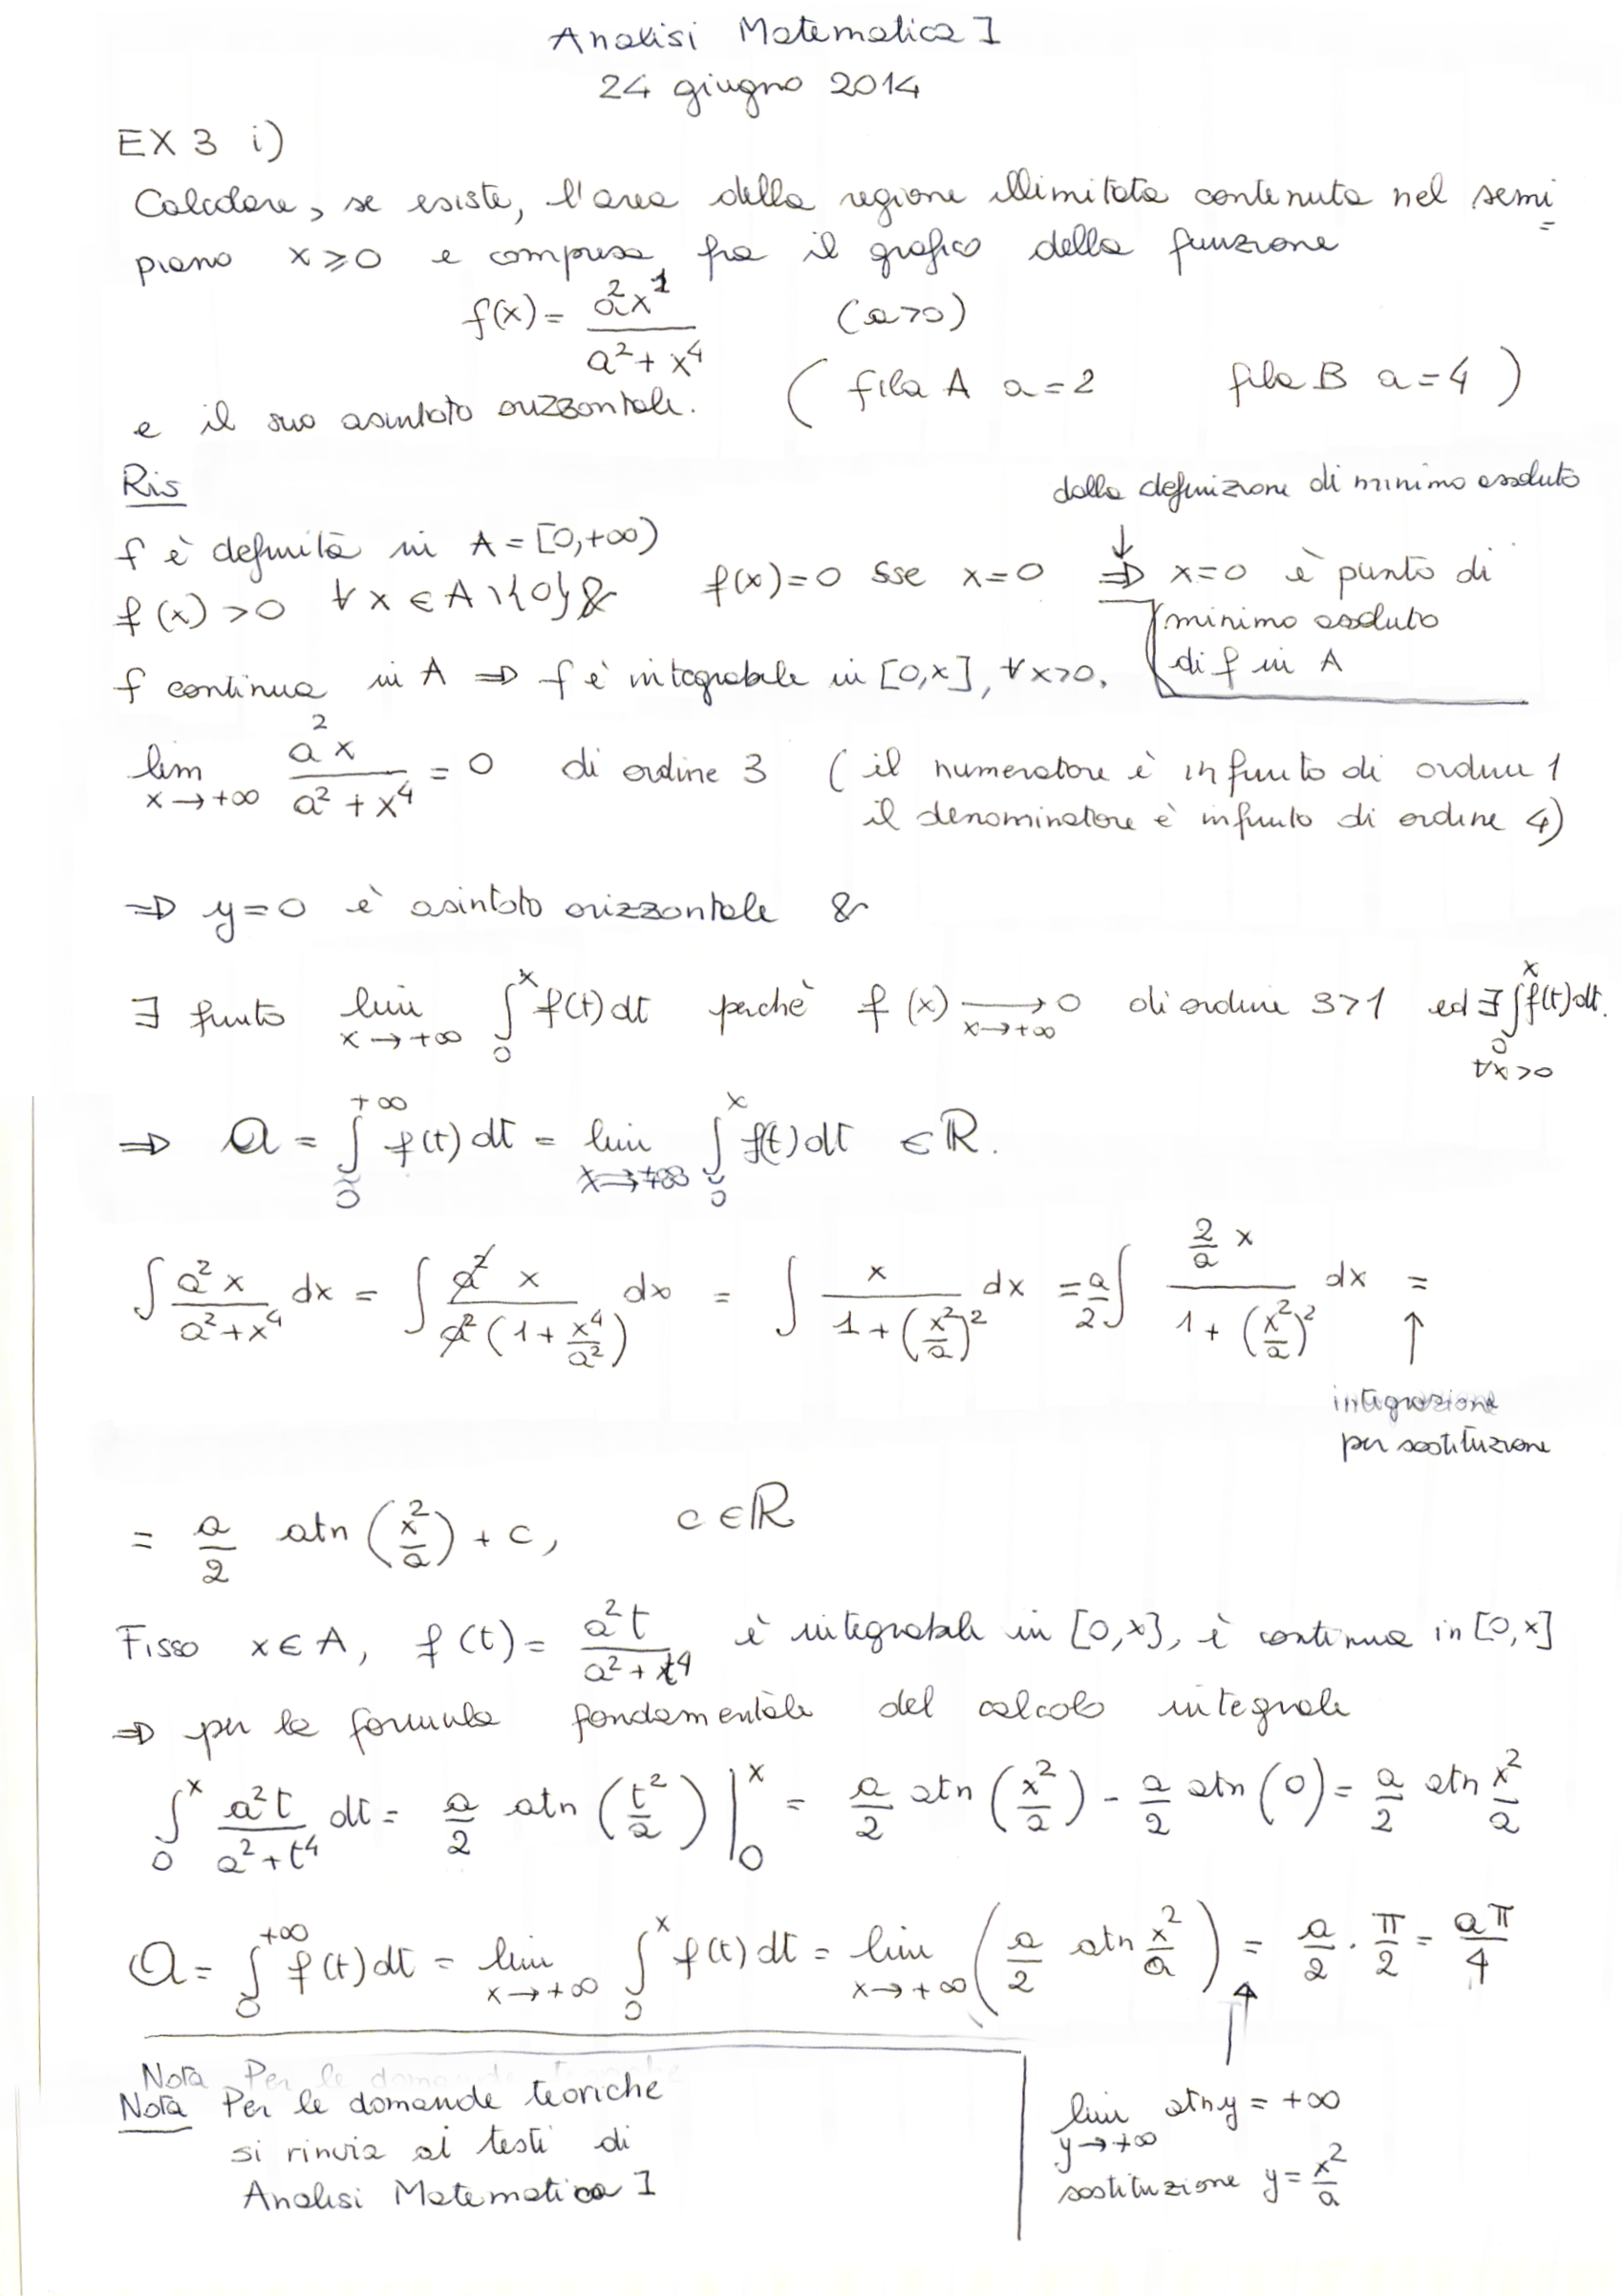 Analisi Matematica I
24 giugno 2014
EX 3 i)
Calcolare, se esiste, l'area della regione illimitata contenuta nel semi=
piano x ⩾ 0 e compresa fra il grafico della funzione
f(x) = a²x¹ / (a² + x⁴) (a>0)
(fila A a=2 fila B a=4)
e il suo asintoto orizzontale.
Ris
dalla definizione di minimo assoluto
f è definita in A = [0,+∞)
f(x) > 0 ∀x∈A\{0} & f(x)=0 sse x=0 ⇒ x=0 è punto di
minimo assoluto
di f in A
f continua in A ⇒ f è integrabile in [0,x], ∀x>0.
lim x→+∞ a²x / (a² + x⁴) = 0 di ordine 3 (il numeratore è infinito di ordine 1
il denominatore è infinito di ordine 4)
⇒ y=0 è asintoto orizzontale &
∃ finito lim x→+∞ ∫₀ˣ f(t)dt perchè f(x) → 0 x→+∞ di ordine 3>1 ed ∃ ∫₀ˣ f(t)dt.
∀x>0
⇒ A = ∫₀^{+∞} f(t)dt = lim x→+∞ ∫₀ˣ f(t)dt ∈ ℝ.
∫ a²x / (a²+x⁴) dx = ∫ a² x / (a²(1 + x⁴/a²)) dx = ∫ x / (1+(x²/a)²) dx = a/2 ∫ (2/a x) / (1+(x²/a)²) dx =
↑
integrazione
per sostituzione
= a/2 atn (x²/a) + c, c∈ℝ
Fisso x∈A, f(t) = a²t / (a²+t⁴) è integrabile in [0,x], è continua in [0,x]
⇒ per la formula fondamentale del calcolo integrale
∫₀ˣ a²t / (a²+t⁴) dt = a/2 atn (t²/a) |₀ˣ = a/2 atn (x²/a) - a/2 atn (0) = a/2 atn x²/a
A = ∫₀^{+∞} f(t)dt = lim x→+∞ ∫₀ˣ f(t)dt = lim x→+∞ (a/2 atn x²/a) = a/2 · π/2 = aπ/4
Nota Per le domande teoriche
Nota Per le domande teoriche
si rinvia ai testi di
Analisi Matematica I
lim y→+∞ atn y = +∞
sostituzione y = x²/a